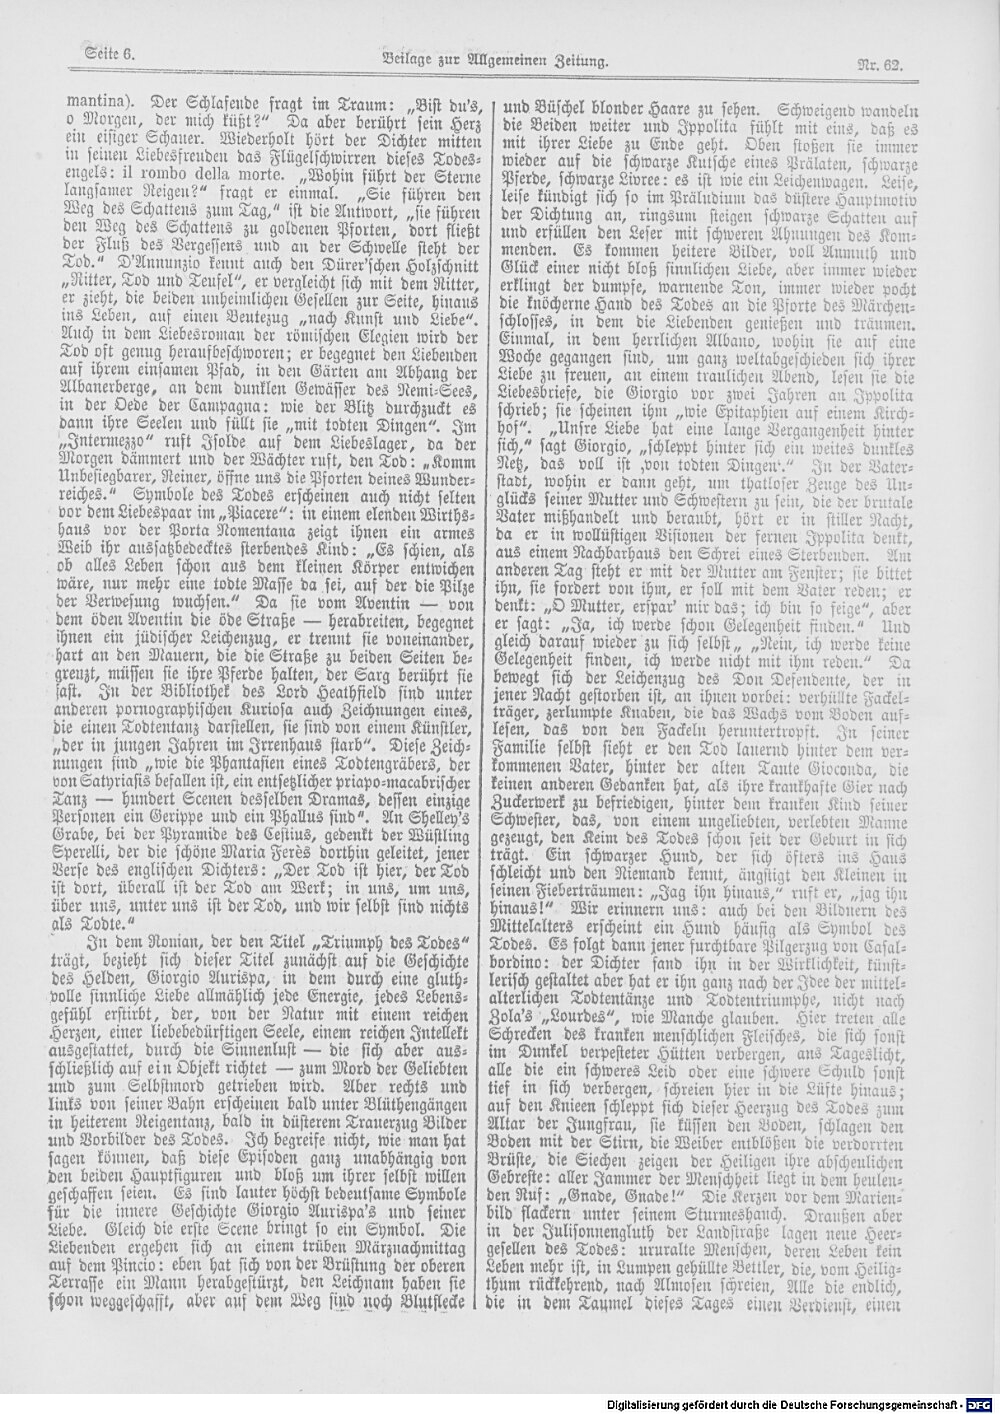 Seite 6.
Beilage zur Allgemeinen Zeitung.
Nr. 62.
mantina). Der Schlafende fragt im Traum: „Bist du's,
o Morgen, der mich küßt?“ Da aber berührt sein Herz
ein eisiger Schauer. Wiederholt hört der Dichter mitten
in seinen Liebesfreuden das Flügelschwirren dieses Todes-
engels: il rombo della morte. „Wohin führt der Sterne
langsamer Reigen?“ fragt er einmal. „Sie führen den
Weg des Schattens zum Tag,“ ist die Antwort, „sie führen
den Weg des Schattens zu goldenen Pforten, dort fließt
der Fluß des Vergessens und an der Schwelle steht der
Tod.“ D'Annunzio kennt auch den Dürer'schen Holzschnitt
„Ritter, Tod und Teufel“, er vergleicht sich mit dem Ritter,
er zieht, die beiden unheimlichen Gesellen zur Seite, hinaus
ins Leben, auf einen Beutezug „nach Kunst und Liebe“.
Auch in dem Liebesroman der römischen Elegien wird der
Tod oft genug heraufbeschworen; er begegnet den Liebenden
auf ihrem einsamen Pfad, in den Gärten am Abhang der
Albanerberge, an dem dunklen Gewässer des Nemi-Sees,
in der Oede der Campagna: wie der Blitz durchzuckt es
dann ihre Seelen und füllt sie „mit todten Dingen“. Im
„Intermezzo“ ruft Isolde auf dem Liebeslager, da der
Morgen dämmert und der Wächter ruft, den Tod: „Komm
Unbesiegbarer, Reiner, öffne uns die Pforten deines Wunder-
reiches.“ Symbole des Todes erscheinen auch nicht selten
vor dem Liebespaar im „Piacere“: in einem elenden Wirths-
haus vor der Porta Nomentana zeigt ihnen ein armes
Weib ihr aussatzbedecktes sterbendes Kind: „Es schien, als
ob alles Leben schon aus dem kleinen Körper entwichen
wäre, nur mehr eine todte Masse da sei, auf der die Pilze
der Verwesung wuchsen.“ Da sie vom Aventin — von
dem öden Aventin die öde Straße — herabreiten, begegnet
ihnen ein jüdischer Leichenzug, er trennt sie voneinander,
hart an den Mauern, die die Straße zu beiden Seiten be-
grenzt, müssen sie ihre Pferde halten, der Sarg berührt sie
fast. In der Bibliothek des Lord Heathfield sind unter
anderen pornographischen Kuriosa auch Zeichnungen eines,
die einen Todtentanz darstellen, sie sind von einem Künstler,
„der in jungen Jahren im Irrenhaus starb“. Diese Zeich-
nungen sind „wie die Phantasien eines Todtengräbers, der
von Satyriasis befallen ist, ein entsetzlicher priapo-macabrischer
Tanz — hundert Scenen desselben Dramas, dessen einzige
Personen ein Gerippe und ein Phallus sind“. An Shelley's
Grabe, bei der Pyramide des Cestius, gedenkt der Wüstling
Sperelli, der die schöne Maria Ferès dorthin geleitet, jener
Verse des englischen Dichters: „Der Tod ist hier, der Tod
ist dort, überall ist der Tod am Werk; in uns, um uns,
über uns, unter uns ist der Tod, und wir selbst sind nichts
als Todte.“
In dem Roman, der den Titel „Triumph des Todes“
trägt, bezieht sich dieser Titel zunächst auf die Geschichte
des Helden, Giorgio Aurispa, in dem durch eine gluth-
volle sinnliche Liebe allmählich jede Energie, jedes Lebens-
gefühl erstirbt, der, von der Natur mit einem reichen
Herzen, einer liebebedürftigen Seele, einem reichen Intellekt
ausgestattet, durch die Sinnenlust — die sich aber aus-
schließlich auf ein Objekt richtet — zum Mord der Geliebten
und zum Selbstmord getrieben wird. Aber rechts und
links von seiner Bahn erscheinen bald unter Blüthengängen
in heiterem Reigentanz, bald in düsterem Trauerzug Bilder
und Vorbilder des Todes. Ich begreife nicht, wie man hat
sagen können, daß diese Episoden ganz unabhängig von
den beiden Hauptfiguren und bloß um ihrer selbst willen
geschaffen seien. Es sind lauter höchst bedeutsame Symbole
für die innere Geschichte Giorgio Aurispa's und seiner
Liebe. Gleich die erste Scene bringt so ein Symbol. Die
Liebenden ergehen sich an einem trüben Märznachmittag
auf dem Pincio: eben hat sich von der Brüstung der oberen
Terrasse ein Mann herabgestürzt, den Leichnam haben sie
schon weggeschafft, aber auf dem Weg sind noch Blutflecke
und Büschel blonder Haare zu sehen. Schweigend wandeln
die Beiden weiter und Ippolita fühlt mit eins, daß es
mit ihrer Liebe zu Ende geht. Oben stoßen sie immer
wieder auf die schwarze Kutsche eines Prälaten, schwarze
Pferde, schwarze Livree: es ist wie ein Leichenwagen. Leise,
leise kündigt sich so im Präludium das düstere Hauptmotiv
der Dichtung an, ringsum steigen schwarze Schatten auf
und erfüllen den Leser mit schweren Ahnungen des Kom-
menden. Es kommen heitere Bilder, voll Anmuth und
Glück einer nicht bloß sinnlichen Liebe, aber immer wieder
erklingt der dumpfe, warnende Ton, immer wieder pocht
die knöcherne Hand des Todes an die Pforte des Märchen-
schlosses, in dem die Liebenden genießen und träumen.
Einmal, in dem herrlichen Albano, wohin sie auf eine
Woche gegangen sind, um ganz weltabgeschieden sich ihrer
Liebe zu freuen, an einem traulichen Abend, lesen sie die
Liebesbriefe, die Giorgio vor zwei Jahren an Ippolita
schrieb; sie scheinen ihm „wie Epitaphien auf einem Kirch-
hof“. „Unsre Liebe hat eine lange Vergangenheit hinter
sich,“ sagt Giorgio, „schleppt hinter sich ein weites dunkles
Netz, das voll ist ‚von todten Dingen‘.“ In der Vater-
stadt, wohin er dann geht, um thatloser Zeuge des Un-
glücks seiner Mutter und Schwestern zu sein, die der brutale
Vater mißhandelt und beraubt, hört er in stiller Nacht,
da er in wollüstigen Visionen der fernen Ippolita denkt,
aus einem Nachbarhaus den Schrei eines Sterbenden. Am
anderen Tag steht er mit der Mutter am Fenster; sie bittet
ihn, sie fordert von ihm, er soll mit dem Vater reden; er
denkt: „O Mutter, erspar' mir das; ich bin so feige“, aber
er sagt: „Ja, ich werde schon Gelegenheit finden.“ Und
gleich darauf wieder zu sich selbst „ „Nein, ich werde keine
Gelegenheit finden, ich werde nicht mit ihm reden.“ Da
bewegt sich der Leichenzug des Don Defendente, der in
jener Nacht gestorben ist, an ihnen vorbei: verhüllte Fackel-
träger, zerlumpte Knaben, die das Wachs vom Boden auf-
lesen, das von den Fackeln heruntertropft. In seiner
Familie selbst sieht er den Tod lauernd hinter dem ver-
kommenen Vater, hinter der alten Tante Gioconda, die
keinen anderen Gedanken hat, als ihre krankhafte Gier nach
Zuckerwerk zu befriedigen, hinter dem kranken Kind seiner
Schwester, das, von einem ungeliebten, verlebten Manne
gezeugt, den Keim des Todes schon seit der Geburt in sich
trägt. Ein schwarzer Hund, der sich öfters ins Haus
schleicht und den Niemand kennt, ängstigt den Kleinen in
seinen Fieberträumen: „Jag ihn hinaus,“ ruft er, „jag ihn
hinaus!“ Wir erinnern uns: auch bei den Bildnern des
Mittelalters erscheint ein Hund häufig als Symbol des
Todes. Es folgt dann jener furchtbare Pilgerzug von Casal-
bordino: der Dichter fand ihn in der Wirklichkeit, künst-
lerisch gestaltet aber hat er ihn ganz nach der Idee der mittel-
alterlichen Todtentänze und Todtentriumphe, nicht nach
Zola's „Lourdes“, wie Manche glauben. Hier treten alle
Schrecken des kranken menschlichen Fleisches, die sich sonst
im Dunkel verpesteter Hütten verbergen, ans Tageslicht,
alle die ein schweres Leid oder eine schwere Schuld sonst
tief in sich verbergen, schreien hier in die Lüfte hinaus;
auf den Knieen schleppt sich dieser Heerzug des Todes zum
Altar der Jungfrau, sie küssen den Boden, schlagen den
Boden mit der Stirn, die Weiber entblößen die verdorrten
Brüste, die Siechen zeigen der Heiligen ihre abscheulichen
Gebreste: aller Jammer der Menschheit liegt in dem heulen-
den Ruf: „Gnade, Gnade!“ Die Kerzen vor dem Marien-
bild flackern unter seinem Sturmeshauch. Draußen aber
in der Julisonnengluth der Landstraße lagen neue Heer-
gesellen des Todes: ururalte Menschen, deren Leben kein
Leben mehr ist, in Lumpen gehüllte Bettler, die, vom Heilig-
thum rückkehrend, nach Almosen schreien, Alle die endlich,
die in dem Taumel dieses Tages einen Verdienst, einen
Digitalisierung gefördert durch die Deutsche Forschungsgemeinschaft - DFG